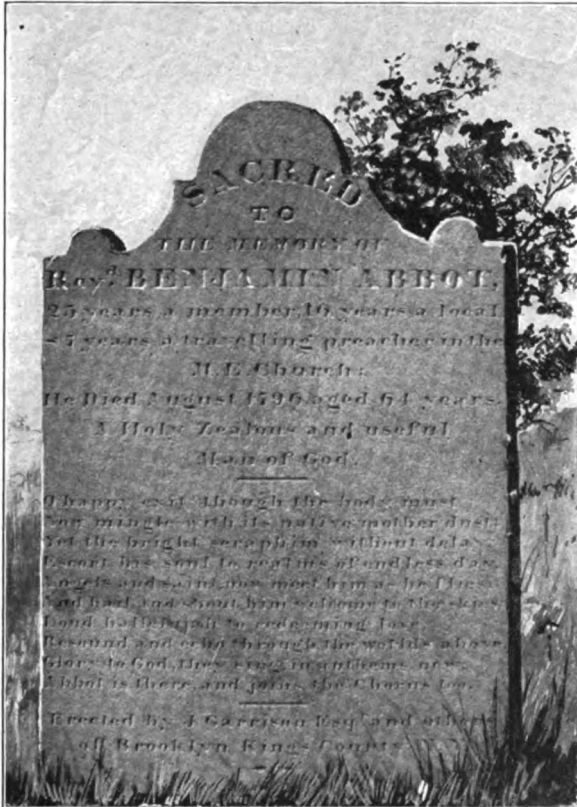 SACRED
TO
THE MEMORY OF
Revd. BENJAMIN ABBOT,
25 years a member, 16 years a local
& 7 years a travelling preacher in the
M. E. Church:
He Died August 1796, aged 64 years.
A Holy Zealous and useful
Man of God.
O happy exit though the body must
Now mingle with its native mother dust;
Yet the bright seraphim without delay
Escort his soul to realms of endless day.
Angels and saints now meet him as he flies
And hail and shout him welcome to the skies
Loud hallelujah to redeeming love
Resound and echo through the worlds above
Glory to God, they sing in anthems new
Abbot is there, and joins the Chorus too.
Erected by J Garrison Esqr and others
of Brooklyn Kings County